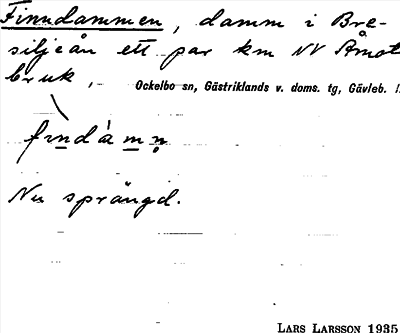 Finndammen, damm i Bre-
siljeån ett par km NV Åmot
bruk,
Ockelbo sn, Gästriklands v. doms. tg, Gävleb. l.
findamn
Nu sprängd.
LARS LARSSON 1935